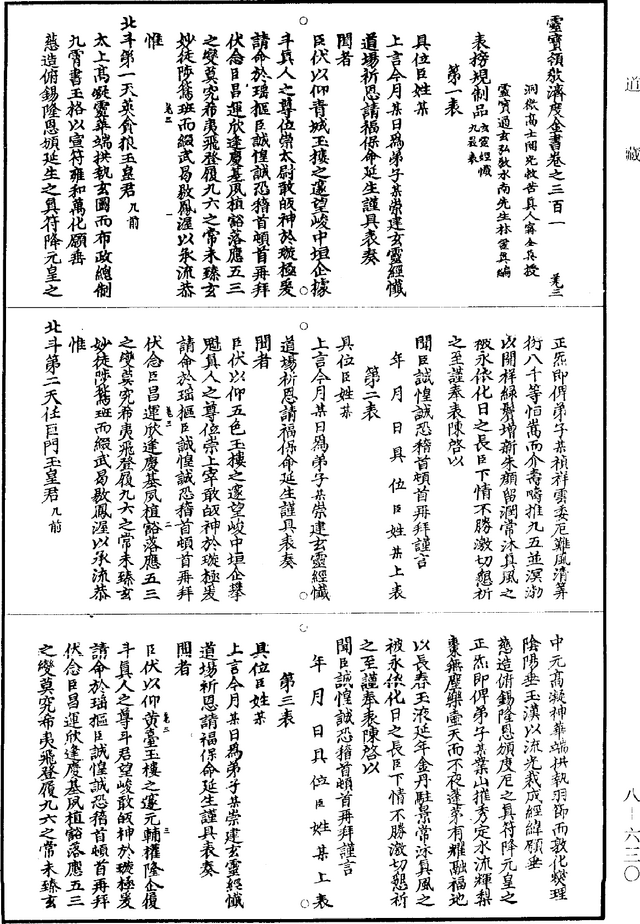 靈寶領教濟度金書卷之三百一 美三
洞微高士開光救苦真人甯全真授
靈寶通玄弘教水南先生林靈真編
表榜規制品 玄靈經懺九表
第一表
具位臣姓某
上言今月某日爲弟子某崇建玄靈經懺
道場祈恩請福保命延生謹具表奏
聞者
臣伏以仰青城玉樓之邃望峻中垣企據
斗真人之尊位崇太尉敢皈神於璇極爰
請命於瑶樞臣誠惶誠恐稽首頓首再拜
伏念臣昌運欣逢慶基夙植豁落應五三
之變莫究希夷飛登履九六之常未臻玄
妙徒陟鵷班而綴武曷敭鳳渥以承流恭
惟
北斗第一天英貪狼玉皇君 九前
太上高凝靈華端拱執玄圖而布政總制
九霄書玉格以宣符雍和萬化願垂
慈造俯錫隆恩頒延生之真符降元皇之
正炁即俾弟子某禎祥雲委厄難風清筭
衍八千等恒嵩而介壽疇推九五並溟渤
以開祥緑鬢增新朱顏留潤常沐真風之
被永依化日之長臣下情不勝激切懇祈
之至謹奉表陳啓以
聞臣誠惶誠恐稽首頓首再拜謹言
年 月 日具 位 臣 姓 某 上表
第二表
具位臣姓某
上言今月某日爲弟子某崇建玄靈經懺
道場祈恩請福保命延生謹具表奏
聞者
臣伏以仰五色玉樓之邃望峻中垣企攀
魁真人之尊位崇上宰敢皈神於璇極爰
請命於瑶樞臣誠惶誠恐稽首頓首再拜
伏念臣昌運欣逢慶基夙植豁落應五三
之變莫究希夷飛登履九六之常未臻玄
妙徒陟鵷班而綴武曷敭鳳渥以承流恭
惟
北斗第二天任巨門玉皇君 九前
中元高凝神華端拱執羽節而敦化燮理
陰陽垂玉漢以流光裁成經緯願垂
慈造俯錫隆恩頒度厄之真符降元皇之
正炁即俾弟子某業山摧秀定水流輝梨
棗無塵藥壺天而不夜蓬萊有耀融福地
以長春玉液延年金丹駐景常沐真風之
被永依化日之長臣下情不勝激切懇祈
之至謹奉表陳啓以
聞臣誠惶誠恐稽首頓首再拜謹言
年 月 日具位臣姓某上表
第三表
具位臣姓某
上言今月某日爲弟子某崇建玄靈經懺
道場祈恩請福保命延生謹具表奏
聞者
臣伏以仰黄臺玉樓之邃元輔權隆企傁
斗真人之尊斗君望峻敢皈神於璇極爰
請命於瑶樞臣誠惶誠恐稽首頓首再拜
伏念臣昌運欣逢慶基夙植豁落應五三
之變莫究希夷飛登履九六之常未臻玄
道藏
八—六三〇